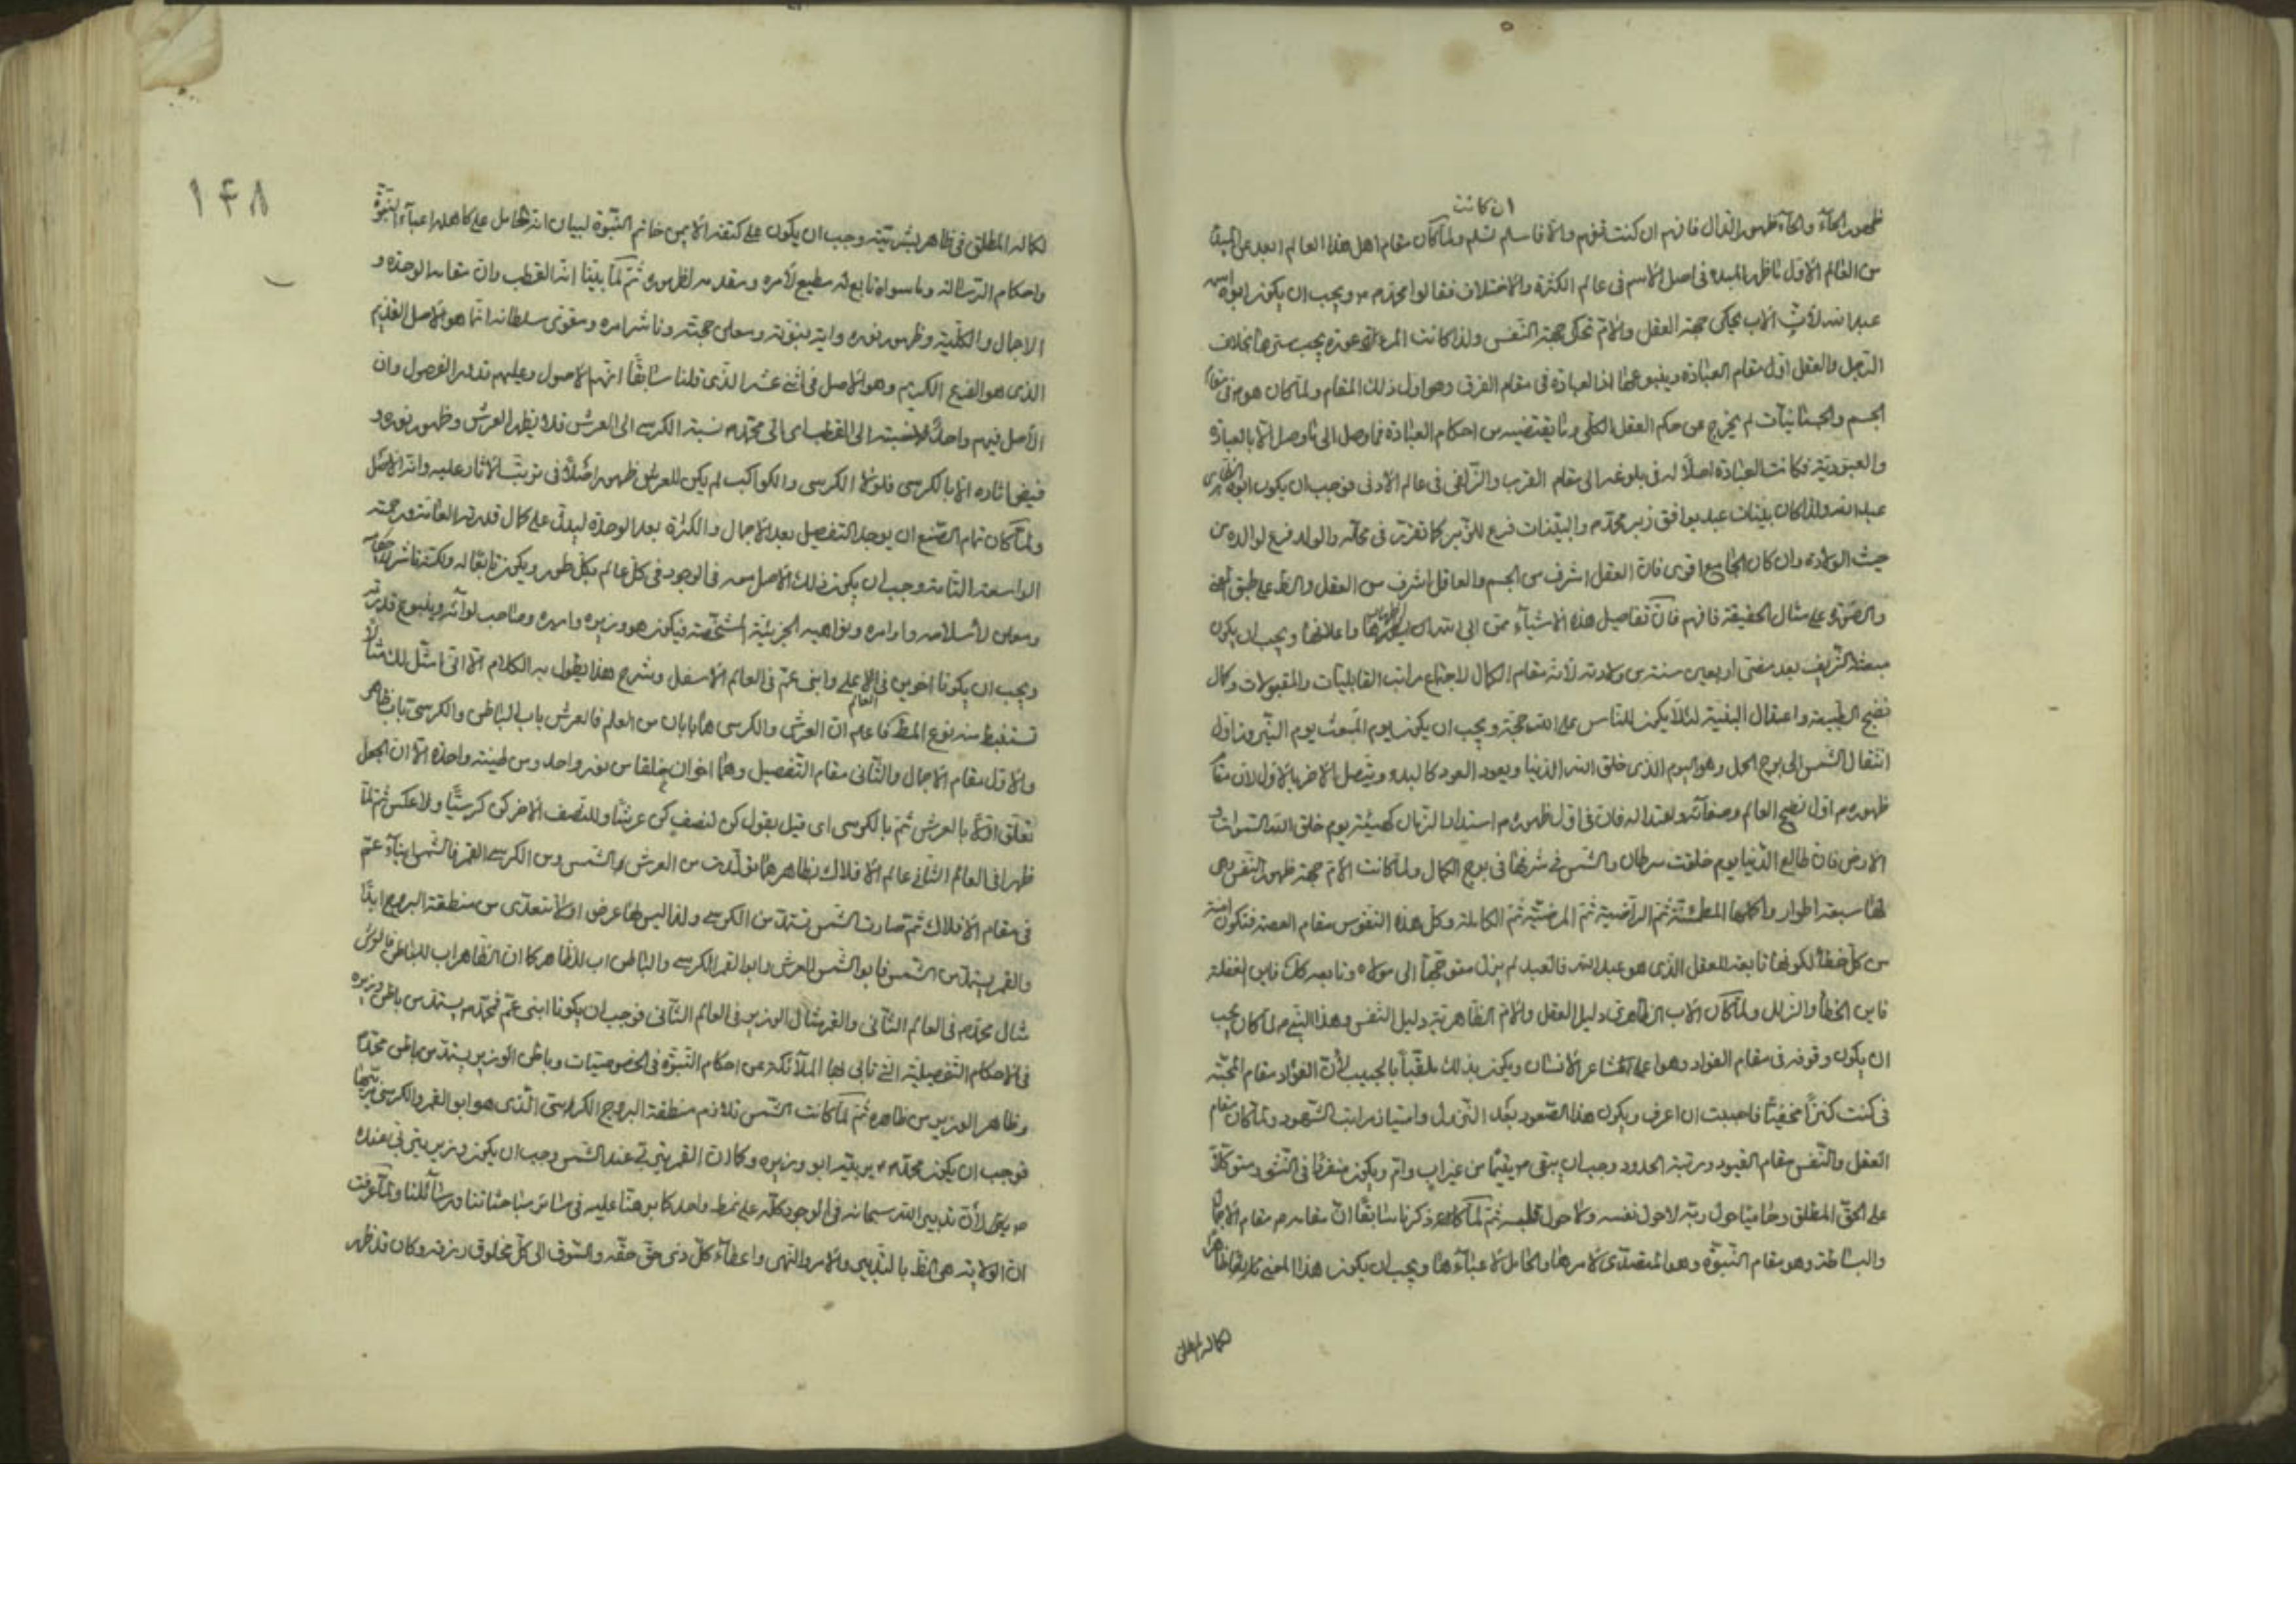 ان كانت
ظهور الحاء والحاء ظهور الدال فافهم ان كنت تفهم والا فاسلم تسلم ولما كان مقام اهل هذا العالم ابعد عن المبدء
من العالم الاول ناظر المبدء في اصل الاسم في عالم الكثرة والاختلاف فقالوا محمد ص ويجب ان يكون ابوه اسمه
عبد الله لأن الأب يحكي جهة العقل والأم تحكي جهة النفس ولذا كانت المرءة عورة يجب سترها بخلاف
الرجل والعقل اول مقام العبادة وينبوعها اذ العبادة في مقام الفرق وهو اول ذلك المقام ولما كان هو ص في مقام
الجسم والجسمانيات لم يخرج عن حكم العقل الكلي وما يقتضيه من احكام العبادة فما وصل الى ما وصل الا بالعبادة
والعبودية فكانت العبادة اصلا له في بلوغه الى مقام القرب والزلفى في عالم الأدنى فوجب ان يكون ابوه الظاهري
عبد الله ولذا كان بينات عبد يوافق زبر محمد ص والبينات فرع للزبر كما تقرر في محله والولد فرع لوالده من
حيث الولادة وان كان الجامع اقوى فان العقل اشرف من الجسم والعاقل اشرف من العقل والظ على طبق
والصورة على مثال الحقيقة فافهم فان تفاصيل هذه الاشياء مما ابى الله الا واعلانها ويجب ان يكون
مبعثه الشريف بعد مضي اربعين سنة من ولادته لأنه مقام الكمال لاجتماع مراتب القابليات والمقبولات وكمال
نضج الطبيعة واعتدال البنية لئلا يكون للناس على الله حجة ويجب ان يكون يوم المبعوث يوم النيروز اول
انتقال الشمس الى برج الحمل وهو اليوم الذي خلق الله الدنيا ويعود العود كالبدء ويتصل الآخر بالأول لأن مقام
ظهوره ص اول نضج العالم وصفائه واعتداله فان في اول ظهوره ص استدار الزمان كهيئته يوم خلق الله السموات و
الارض فان طالع الدنيا يوم خلقت سرطان والشمس في شرفها في بوج الكمال ولما كانت الأم جهة ظهور النفس وهي
لها سبعة اطوار واكملها المطمئنة ثم الراضية ثم المرضية ثم الكاملة وكل هذه النفوس مقام العصمة فتكون امنة
من كل خطأ لكونها تابعة للعقل الذي هو عبد الله فالعبد لم يزل متوجها الى مولاه وتابعه كك فاين الغفلة
فاين الخطأ والزلل ولما كان الأب الظاهري دليل العقل والأم الظاهرية دليل النفس وهذا النبي ص لما كان يجب
ان يكون وقوفه في مقام الفؤاد وهو اعلى مشاعر الانسان ويكون بذلك ملقبا بالحبيب لأن الفؤاد مقام المحبة
في كنت كنزا مخفيا فاحببت ان اعرف ويكون هذا الصعود بعد النزول وامتياز مراتب الشهود ولما كان مقام
العقل والنفس مقام القيود ورتبة الحدود وجب ان يبقى ص يتيما من غير اب وام ويكون منفردا في النشو متوكلا
على الحق المطلق وحاميا حول ربه لا حول نفسه ولا حول قلبه ثم لما كان ذكرنا سابقا ان مقامه ص مقام الاجمال
والبساطة وهو مقام النبوة وهو المتصدي لأمرها والحامل لأعبائها ويجب ان يكون هذا المعنى
كماله المطلق
١٤٨
لكماله المطلق في ظاهر بشريته وجب ان يكون على كتفه الأيمن خاتم النبوة لبيان انه الحامل على كاهله اعباء النبوة
واحكام الرسالة وما سواه تابع له مطيع لأمره ومقدمه لظهوره ثم لما بينا انه القطب وان مقامه الوحدة و
الاجمال والكلية وظهور نوره واية نبوته ومعلن حجته وناشر امره ومقوى سلطانه انما هو الأصل القديم
الذي هو الفرع الكريم وهو الأصل في اثنى عشر الذي قلنا سابقا انهم الأصول وعليهم تدور الفصول وان
الأصل فيهم واحد نسبته الى القطب اي الى محمد ص نسبة الكرسي الى العرش فلا يظهر العرش وظهور نوره و
فيض اثاره الا بالكرسي فلولا الكرسي والكواكب لم يكن للعرش ظهور اصلا في ترتب الآثار عليه وانه الأصل
ولما كان تمام الصنع ان يوجد التفصيل بعد الاجمال والكثرة بعد الوحدة ليدل على كمال قدرته العامة ورحمته
الواسعة التامة وجب ان يكون ذلك الأصل معه في الوجود في كل عالم بكل طور ويكون تاليا له ولكنه ناشر
ومعلن لاسلامه واوامره ونواهيه الجزئية المشخصة فيكون هو وزيره واميره وصاحب لوائه وينبوع قدرته
ويجب ان يكونا اخوين في العالم الاعلى وابني عم في العالم الأسفل وشرح هذا يطول به الكلام الا اني امثل لك مثالا
تستنبط منه نوع المط فاعلم ان العرش والكرسي هما بابان من العلم فالعرش باب الباطن والكرسي باب الظاهر
والأول مقام الاجمال والثاني مقام التفصيل وهما اخوان خلقا من نور واحد ومن طينة واحدة الا ان الجعل
تعلق اولا بالعرش ثم بالكرسي اي قيل بقول كن لنصف كن عرشا وللنصف الآخر كن كرسيا ولا عكس ثم لما
ظهرا في العالم الثاني عالم الأفلاك بظاهرهما تولدت من العرش الشمس ومن الكرسي القمر فالشمس ابناء عم
في مقام الأفلاك ثم صارت الشمس تستمد من الكرسي ولذا ليس لها عرض اذ لا تتعدى من منطقة البروج ابدا
والقمر يستمد من الشمس فابو الشمس العرش وابو القمر الكرسي والباطن اب للظاهر كما ان الظاهر اب للباطن فالعرش
مثال محمد ص في العالم الثاني والقمر مثال الوزير في العالم الثاني فوجب ان يكونا ابني عم فمحمد ص يستمد من باطن وزيره
في الأحكام التفصيلية التي تاتي بها الملائكة من احكام النبوة في الخصوصيات وباطن الوزير يستمد من باطن محمد ص
وظاهر الوزير من ظاهره ثم لما كانت الشمس تلازم منطقة البروج الكرسي الذي هو ابو القمر والكرسي مربيها
فوجب ان يكون محمد ص يربيه ابو وزيره وكما ان القمر يتربى عند الشمس وجب ان يكون وزيره يتربى عنده
ص لأن تدبير الله سبحانه في الوجود كله على نمط واحد كما برهنا عليه في سائر مباحثاتنا ورسائلنا ولما عرفت
ان الولاية هي النظر بالتدبير والأمر والنهي واعطاء كل ذي حق حقه والسوق الى كل مخلوق رزقه وكان قد ظهر